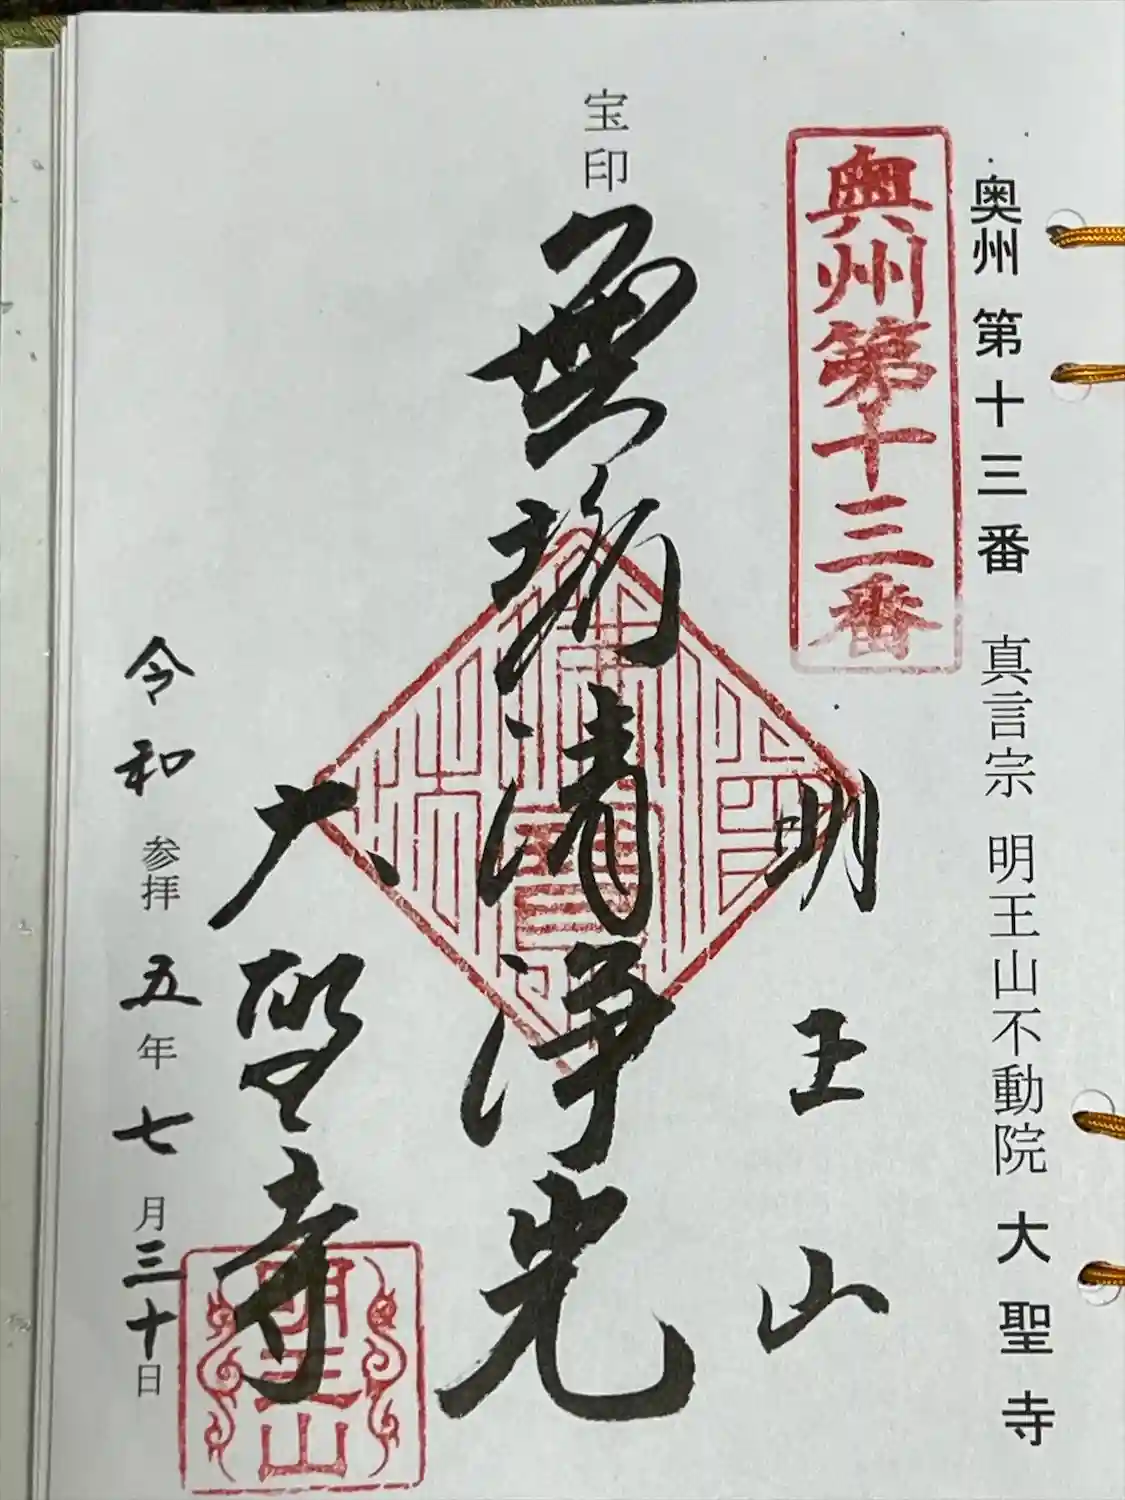 奥州 第十三番 真言宗 明王山不動院 大聖寺
奥州第十三番
明王山
宝印
無垢清浄光
大聖寺
明王山
令和 参拝 五年 七月三十日